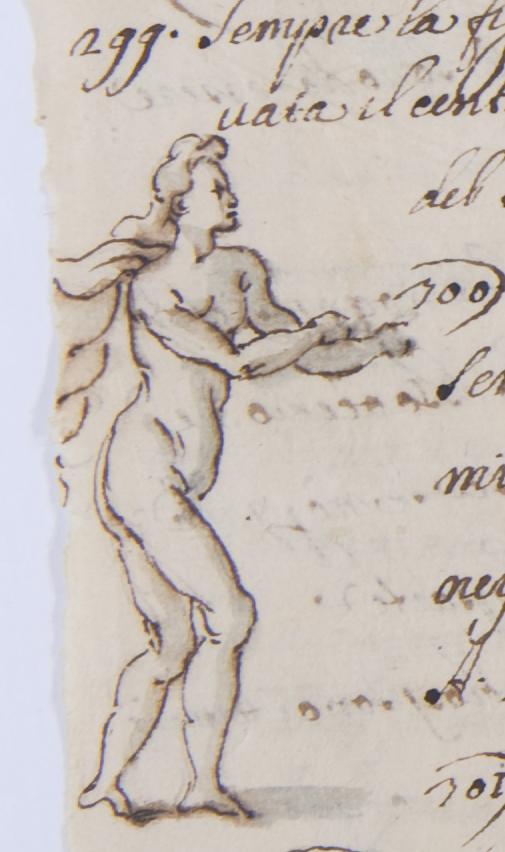 299. Sempre la fi
uata il cent
del
300
Ser
mi
301